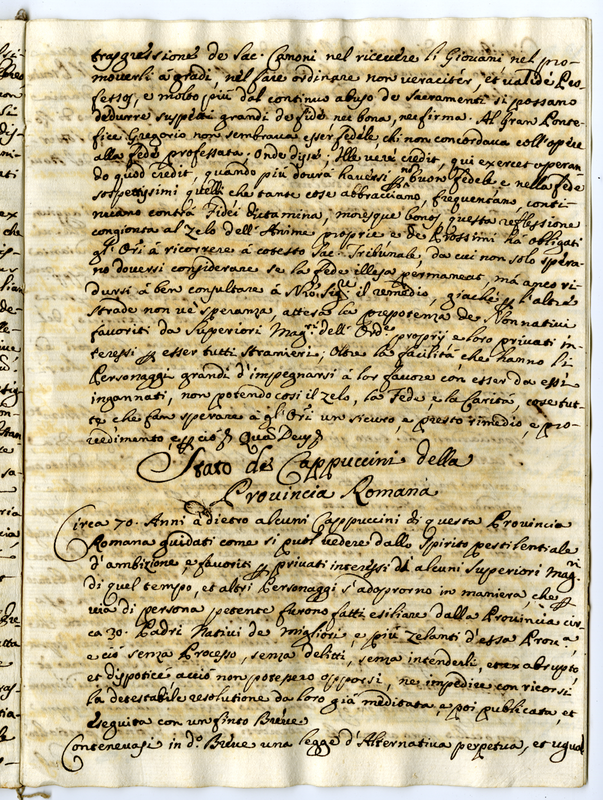 trasgressione de Sac. Canoni nel ricevere li Giovani nel pro-
moverli a gradi, nel fare ordinare non veraciter, et valide Pro-
fessos, e molto più dal continuo abuso de Sacramenti si possano
dedurre suspetti grandi de fide nec bona, nec firma. Al Gran Ponte-
fice Gregorio non sembrava esser fedele chi non concordava coll'opere
alla fede professata, Onde disse; Ille vere credit, qui exercet operan-
do quod credit, quando più dovrà haversi buon fedele e nella fede
sospettissimi quelli che tante cose abbracciano, frequentano, conti-
nuano contra Fidei dictamina, moresque bonos; questa reflessione
congionta al zelo dell'Anime proprie e de Prossimi ha obligati
gl'Ori à ricorrere à cotesto Sac. Tribunale, da cui non solo spera-
no doversi considerare se la fede illesa permaneat, mà anco ri-
dursi à ben consultare à il remedio, giache p l'altre
strade non ve speranza, attesa la prepotenza de Nonnativi
favoriti da Superiori Magri dell'Orde proprij e loro privati in-
teressi p esser tutti Stranieri; Oltre la facilità che hanno li
Personaggi grandi d'impegnarsi à lor favore con esser da essi
ingannati, non potendo cosi il zelo, la fede, e la Carità, cose tut-
te che fan sperare à gl'Ori un sicuro, e presto rimedio, e pro-
vedimento e p ciò p Quã Deus p
Stato de Cappuccini della
Provincia Romana
Circa 70. Anni à dietro alcuni Cappuccini di questa Provincia
Romana guidati come si puol vedere dallo Spirito pestilentiale
d'ambizione, e favoriti p privati interessi da alcuni Superiori Magri
di quel tempo, et altri Personaggi s'adoprorno in maniera, che p
via di persona potente furono fatti esiliare dalla Provincia cir-
ca 30. Padri Nativi de migliori e più zelanti d'essa Prova
e ciò senza Processo, senza delitti, senza intenderli, et ex abrupto,
et dispoticè acciò non potessero opporsi, ne impedire con ricorsi
la detestabile resolutione da loro già meditata e poi publicata, et
eseguita con un finto Breve
Contenevasi in do Breve una legge d'Alternativa perpetua, et ugual